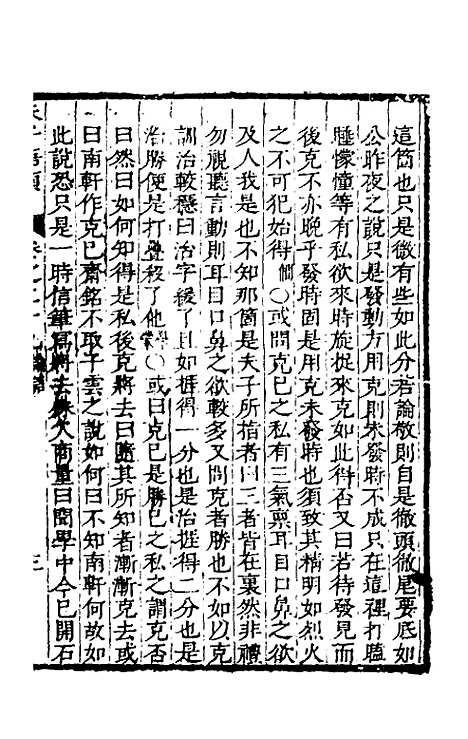 這箇也只是微有些如此分若論敬則自是徹頭徹尾要底如
公昨夜之說只是發動方用克則未發時不成只在這裡打瞌
睡懞憧等有私欲來時旋捉來克如此得否又曰若待發見而
後克不亦晚乎發時固是用克未發時也須致其精明如烈火
之不可犯始得 僩 〇或問克己之私有三氣稟耳目口鼻之欲
及人我是也不知那箇是夫子所指者曰三者皆在裏然非禮
勿視聽言動則耳目口鼻之欲較多又問克者勝也不如以克
訓治較穩曰治字緩了且如捱得一分也是治捱得二分也是
治勝便是打疊殺了他 〇或曰克己是勝己之私之謂克否
曰然曰如何知得是私後克將去曰隨其所知者漸漸克去或
曰南軒作克己齋銘不取子雲之說如何曰不知南軒何故如
此說恐只是一時信筆寫將去 人商量曰聞學中今已開石
三